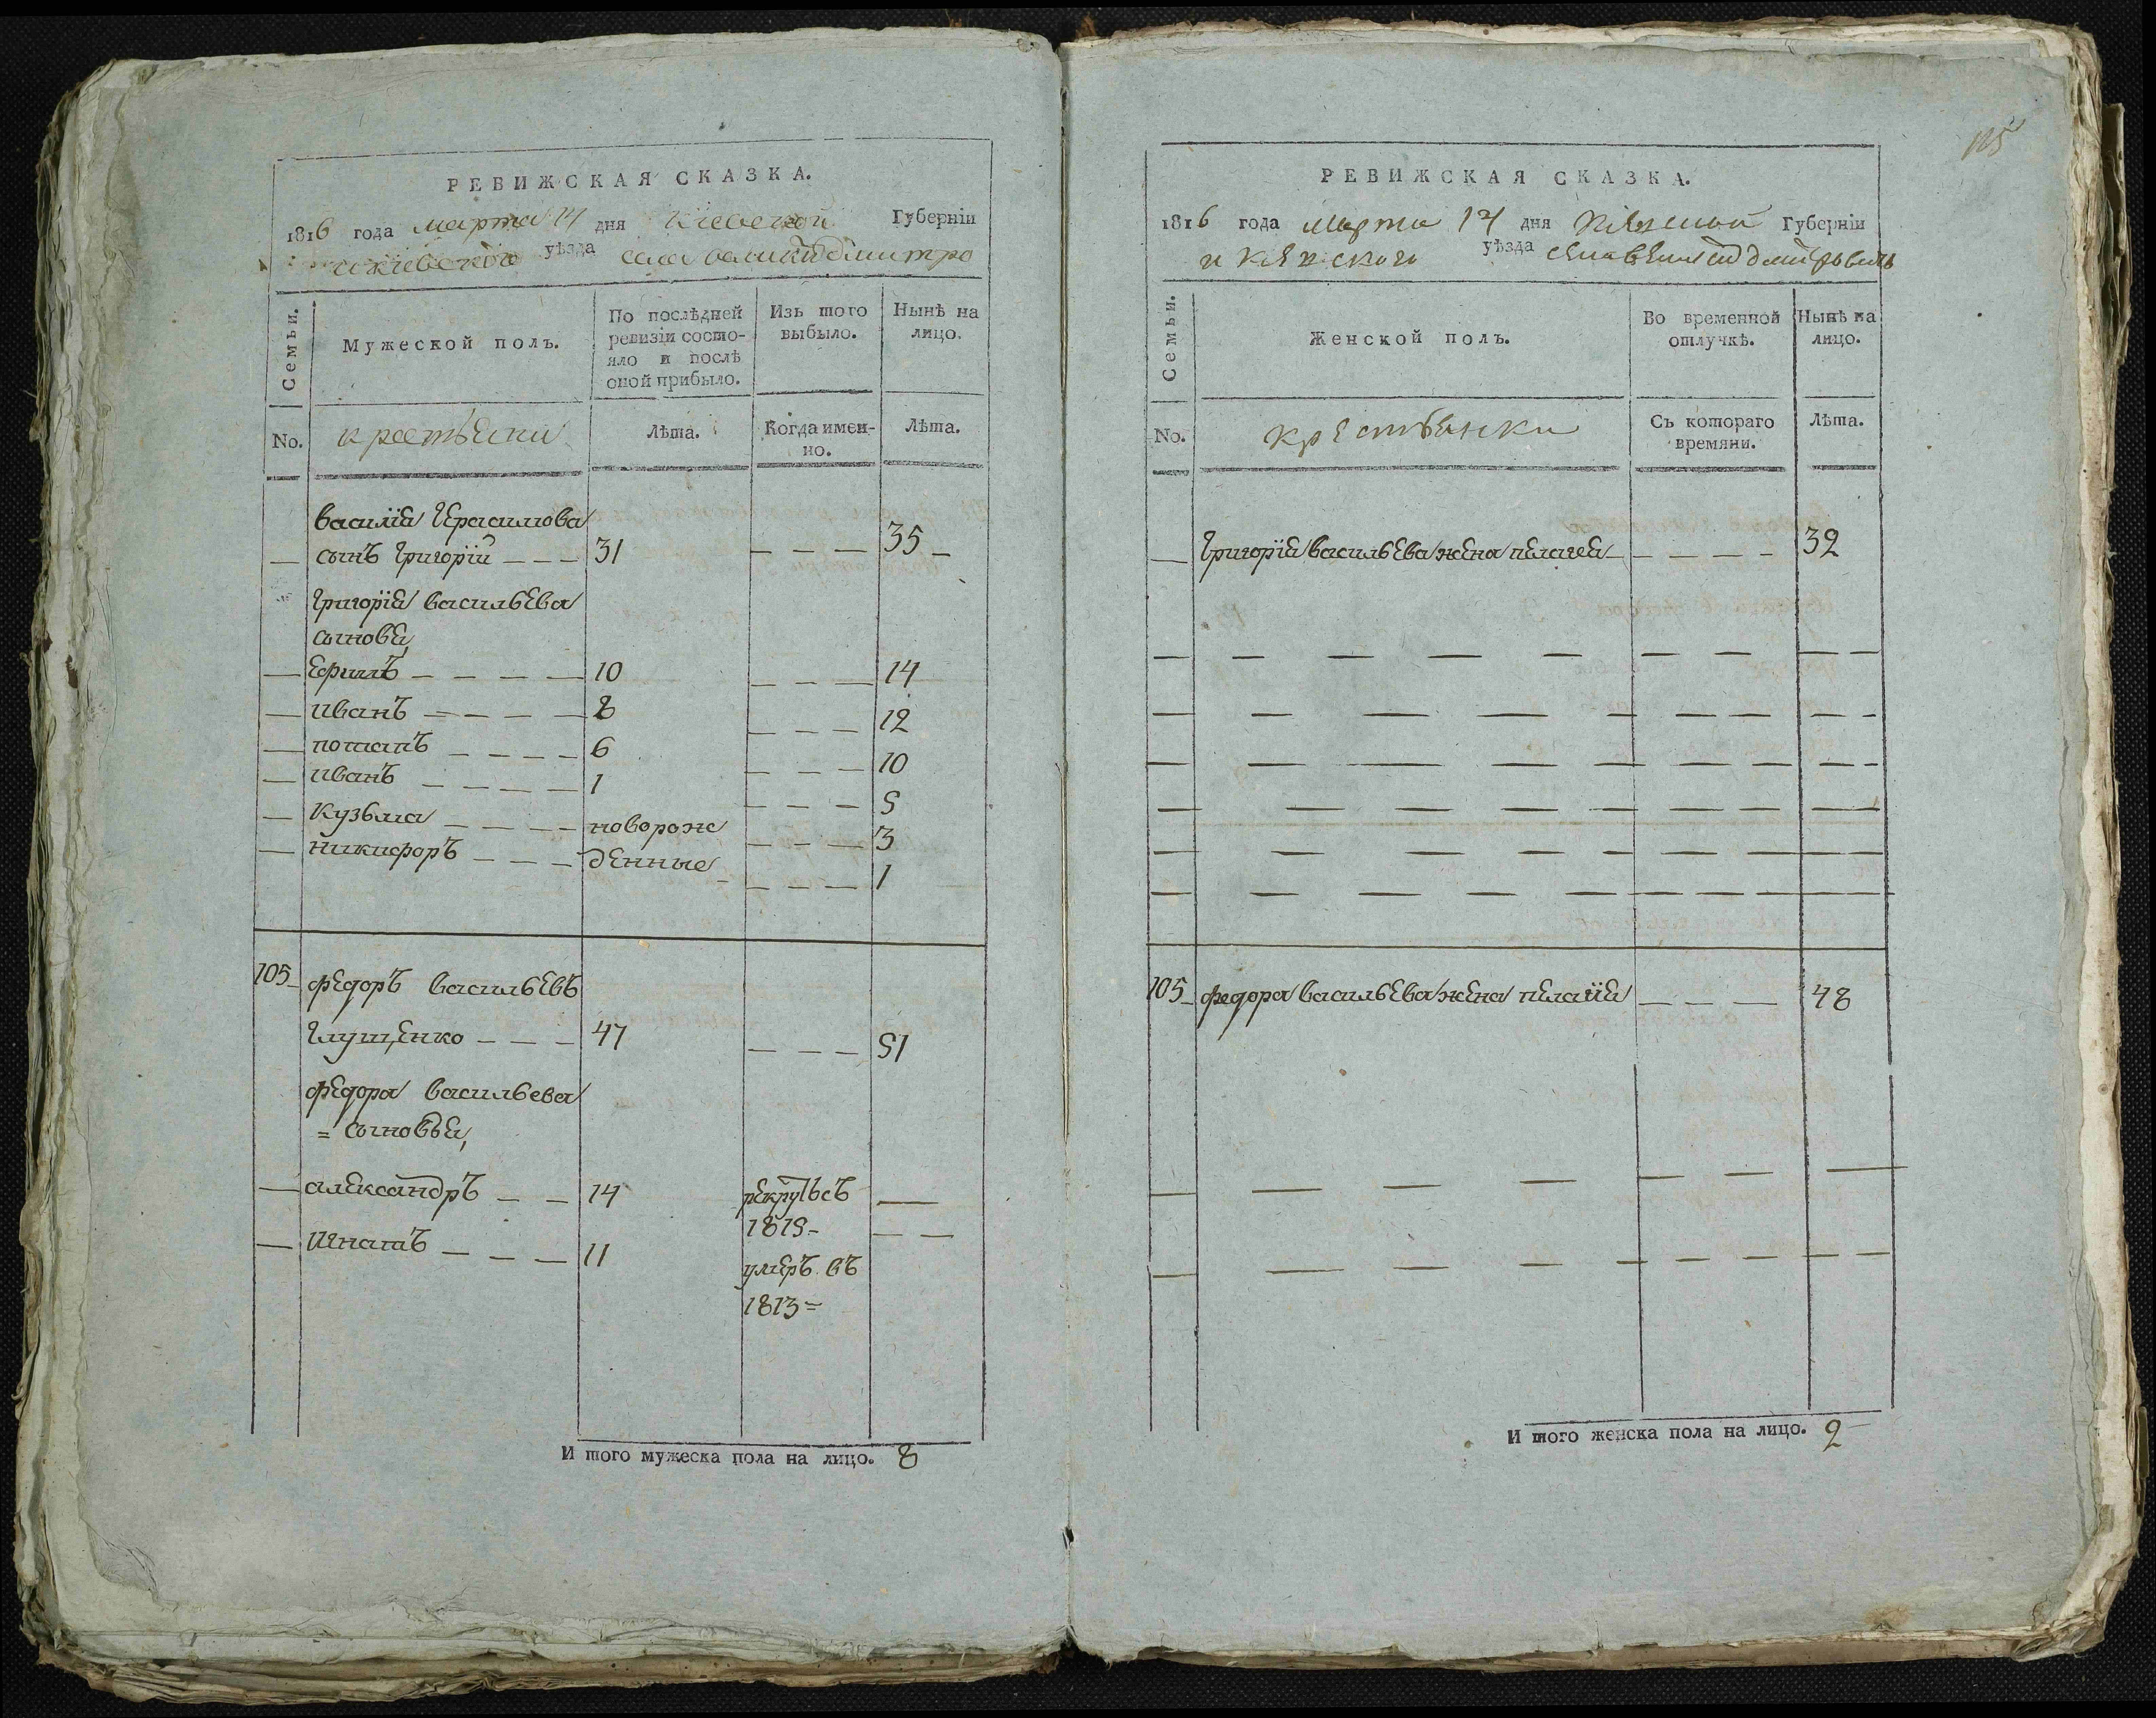 РЕВИЖСКАЯ СКАЗКА.
1816 года марта 14 дня Кіевской Губерніи
и кіевского уѣзда села великий дмитро
Семьи.
Мужеской полъ.
По послѣдней ревизіи состояло и послѣ оной прибыло.
Изъ того выбыло.
Нынѣ на лицо.
No.
крестьяни
Лѣта.
Когда именно.
Лѣта.
василия Герасимова
— сынъ Григорий — — — 31 — — — 35 —
Григория васильева
сыновя,
— Ефимъ — — — — 10 — — — 14
— иванъ — — — — 8 — — — 12
— потапъ — — — — 6 — — — 10
— иванъ — — — — 1 — — — 5
— Кузьма — — — — новорож — — — 3
— никифоръ — — — денные — — — — 1
105 — федоръ васильевъ
Глущенко — — — 47 — — — 51
федора васильева
= сыновья,
— александръ — — 14 рекрутъсъ —
1815 — — —
— игнатъ — — — 11 умеръ въ
1813 =
И того мужеска пола на лицо. 8
105
РЕВИЖСКАЯ СКАЗКА.
1816 года марта 14 дня Губерніи
уѣзда
Семьи.
Женской полъ.
Во временной отлучкѣ.
Нынѣ на лицо.
No.
крестьянки
Съ котораго времяни.
Лѣта.
— Григория васильева жена пелагея — — — — — 32
105 — федора васильева жена пелагия — — — 48
И того женска пола на лицо. 2